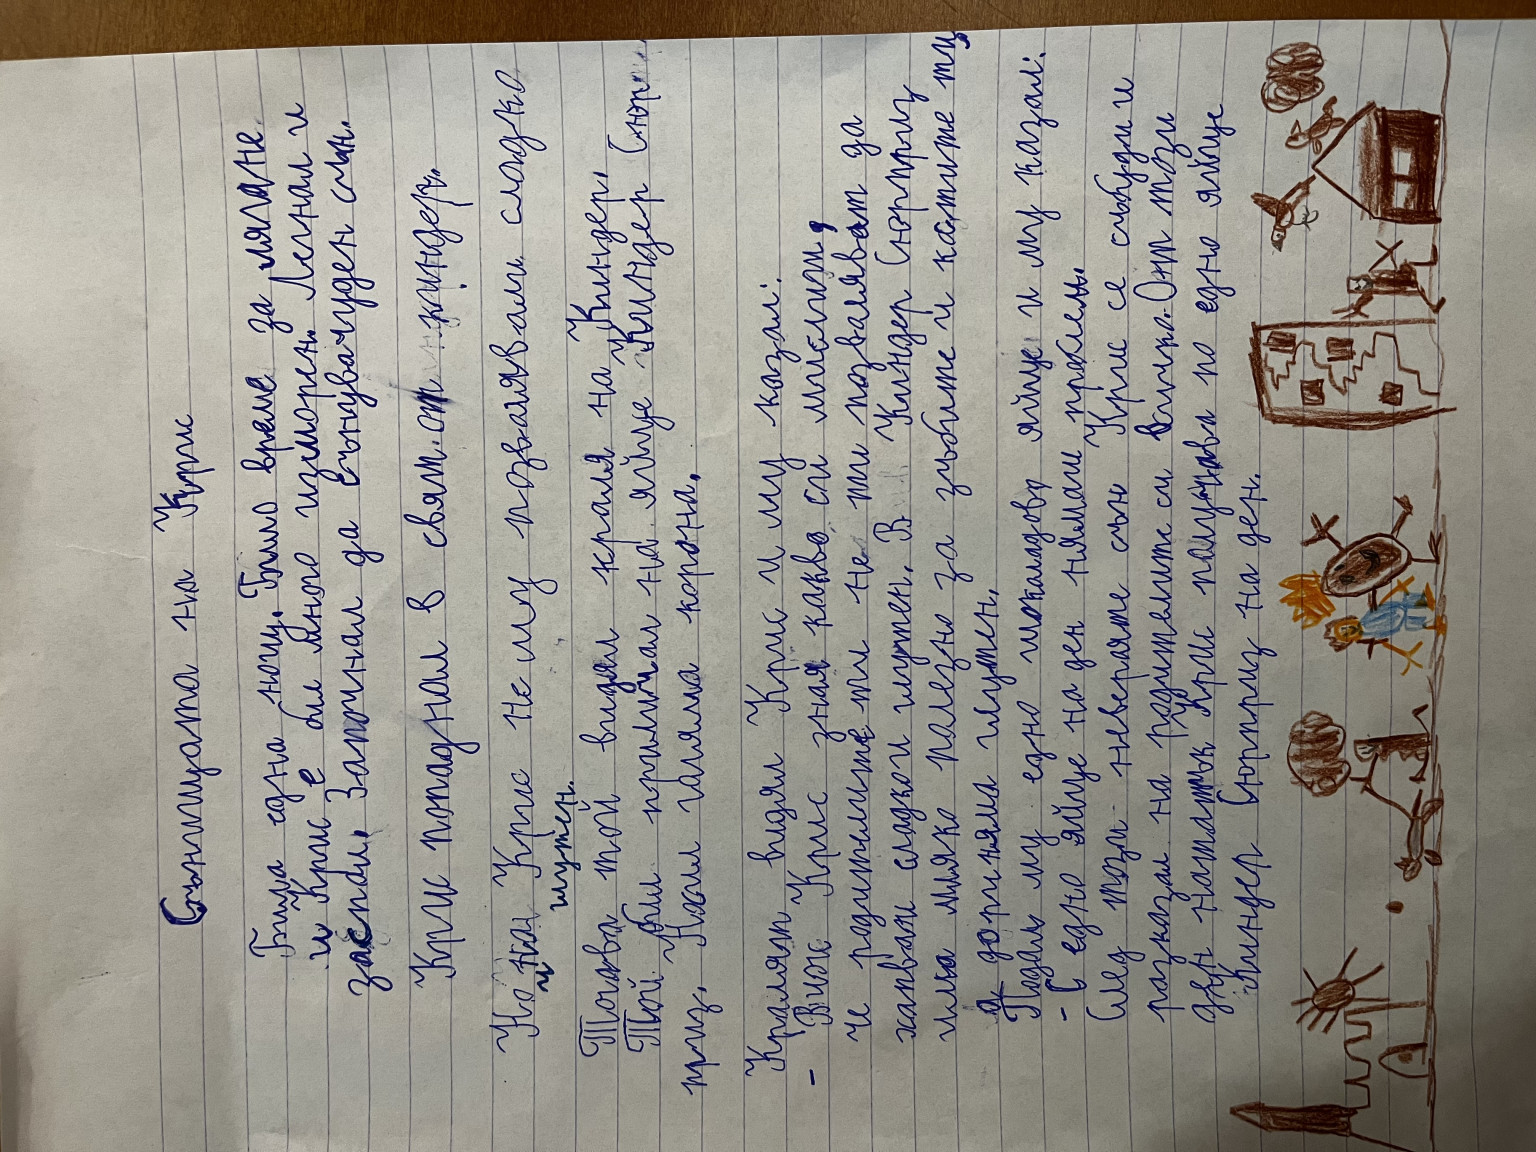 Сънищата на Крис
Била една нощ. Било време за лягане
и Крис е бил много изморен. Легнал и
заспал. Започнал да сънува чуден сън.
Крис попаднал в свят от киндер.
Но на Крис не му позволявали сладко
и глутен.
Тогава той видял краля на Киндер.
Той бил приличал на яйце Киндер Сюр
приз. Носил голяма корона.
Кралят видял Крис и му казал:
- Виж Крис зная какво си мислиш,
че родителите ти не ти позволяват да
хапваш сладко и глутен. В Киндер Сюрприз
има мляко полезно за зъбите и костите ти,
а дори няма глутен.
Подал му едно шоколадово яйце и му казал:
- С едно яйце на ден нямаш проблем.
След този невероятен сън Крис се събуди и
разказал на родителите си всичко. От този
ден нататък Крис получава по едно яйце
Киндер Сюрприз на ден.